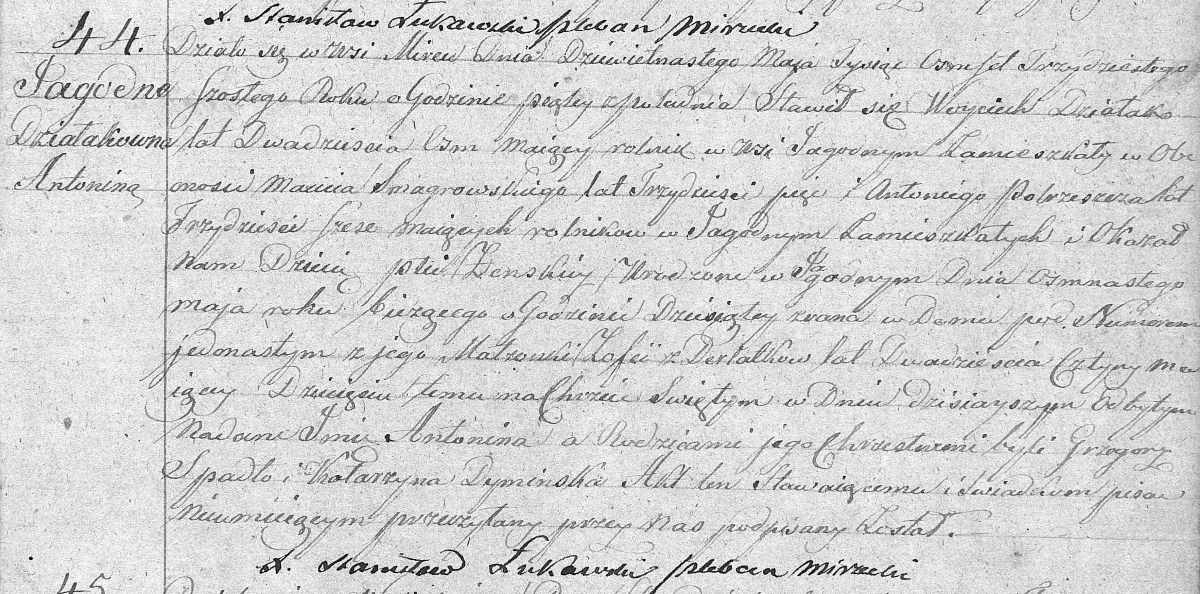 X. Stanisław Łukawski pleban Mirzecki
44.
Jagodne
Działakowna
Antonina
Działo się w wsi Mircu Dnia Dziewietnastego Maja Tysiąc Osmset Trzydziestego
szostego Roku o Godzinie piątey zpołudnia Stawił się Woyciech Działak
lat Dwadziescia Osm maiący rolnik w wsi Jagodnym Zamieszkały w Obe
cnosci Macieia Smagrowskiego lat Trzydziesci pięc i Antoniego Pobrzeszcza lat
Trzydziesci szesc maiących rolnikow w Jagodnym Zamieszkałych i Okazał
Nam Dziecię płci Zenskiey Urodzone w Jagodnym Dnia Osmnastego
maja roku biezącego o Godzinie Dziesiątey zrana w Domu pod Numerem
jedenastym z jego Małzonki Zofii z Derlatkow lat Dwadziescia Cztyry ma
iącey Dziecięciu temu na Chrzcie Swiętym w Dniu dzisiayszym Odbytym
Nadane Imie Antonina a Rodzicami jego Chrzestnemi byli Grzegorz
Spadło i Katarzyna Dyminska Akt ten Stawaiącemu i swiadkom pisac
Nieumieiącym przeczytany przez Nas podpisany Został.
X. Stanisław Łukawski pleban Mirzecki
45